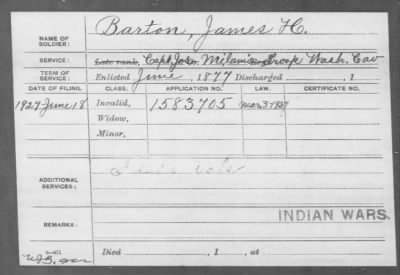 NAME OF SOLDIER: Barton, James H.
SERVICE: Late rank, Capt. Jos. Milam's Troop Wash. Cav
TERM OF SERVICE: Enlisted June, 1877 Discharged , 1
DATE OF FILING. CLASS. APPLICATION NO. LAW. CERTIFICATE NO.
1927 June 18 Invalid, 1583705 Mar 3 1927
Widow,
Minor,
ADDITIONAL SERVICES:
INDIAN WARS.
REMARKS:
Died , 1 , at